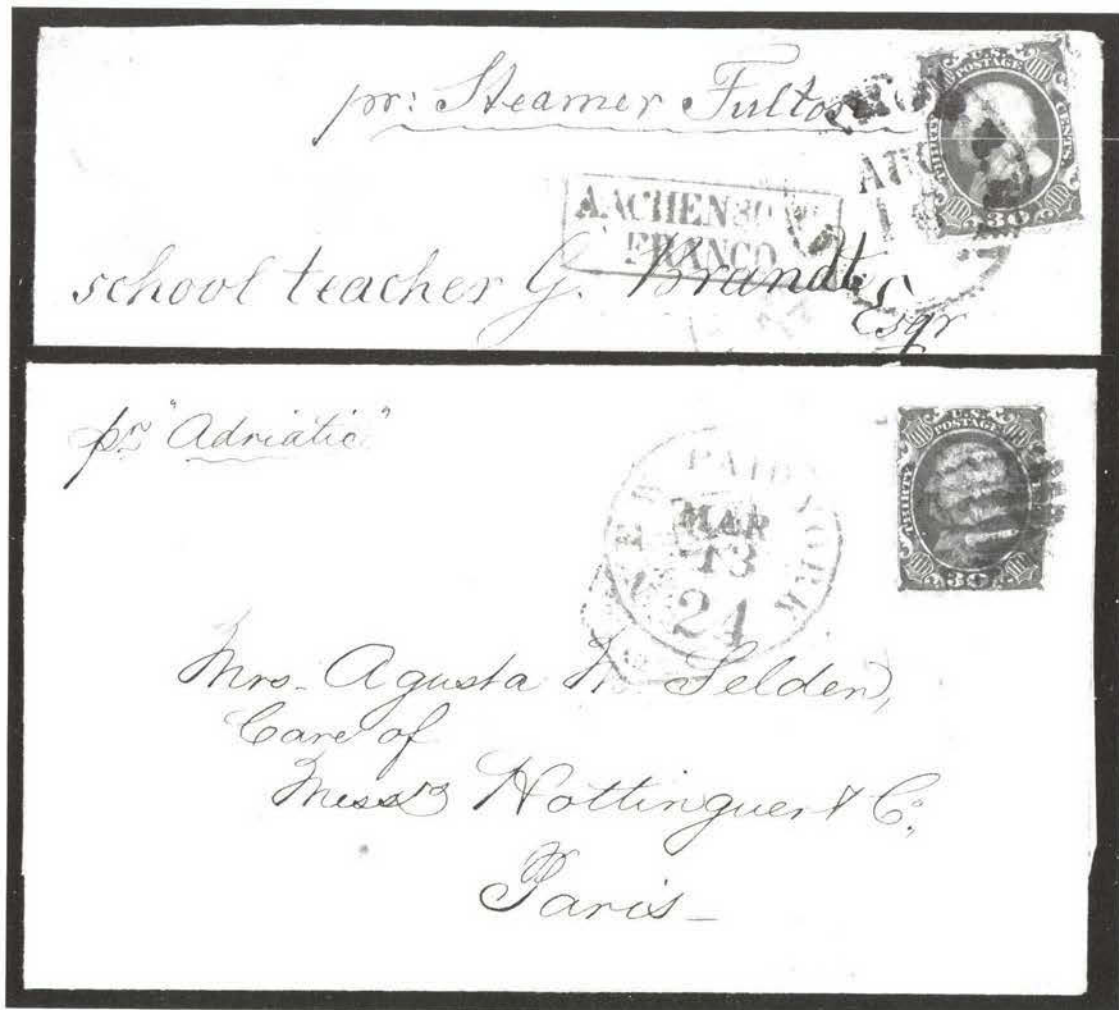 pr: Steamer Fulton
U.S.
POSTAGE
THIRTY
CENTS
30
AACHEN
FRANCO
school teacher G. Brandt
Esqr
pr "Adriatic"
U.S.
POSTAGE
THIRTY
30
PAID
MAR
13
24
YORK
Mrs. Agusta Selden,
Care of
Messrs Hottinguer & Co,
Paris